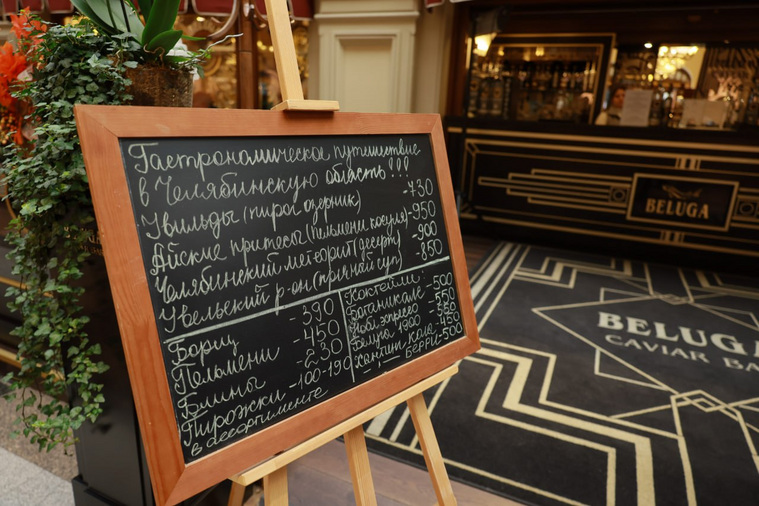 Гастрономическое путешествие
в Челябинскую область!!!
Увильды (пирог озерник) -730
Айские притесы (пельмени косуля) -950
Челябинский метеорит (десерт) -900
Увельский р-он (пряный суп) -850
Борщ - 390
Пельмени - 450
Блины - 230
Пирожки -100-190
в ассортименте
Коктейли:
Ботаникал -500
эспрессо -550
Белуга 1900
кола -450
БЕРРИ-500
BELUGA
BELUGA
CAVIAR BA